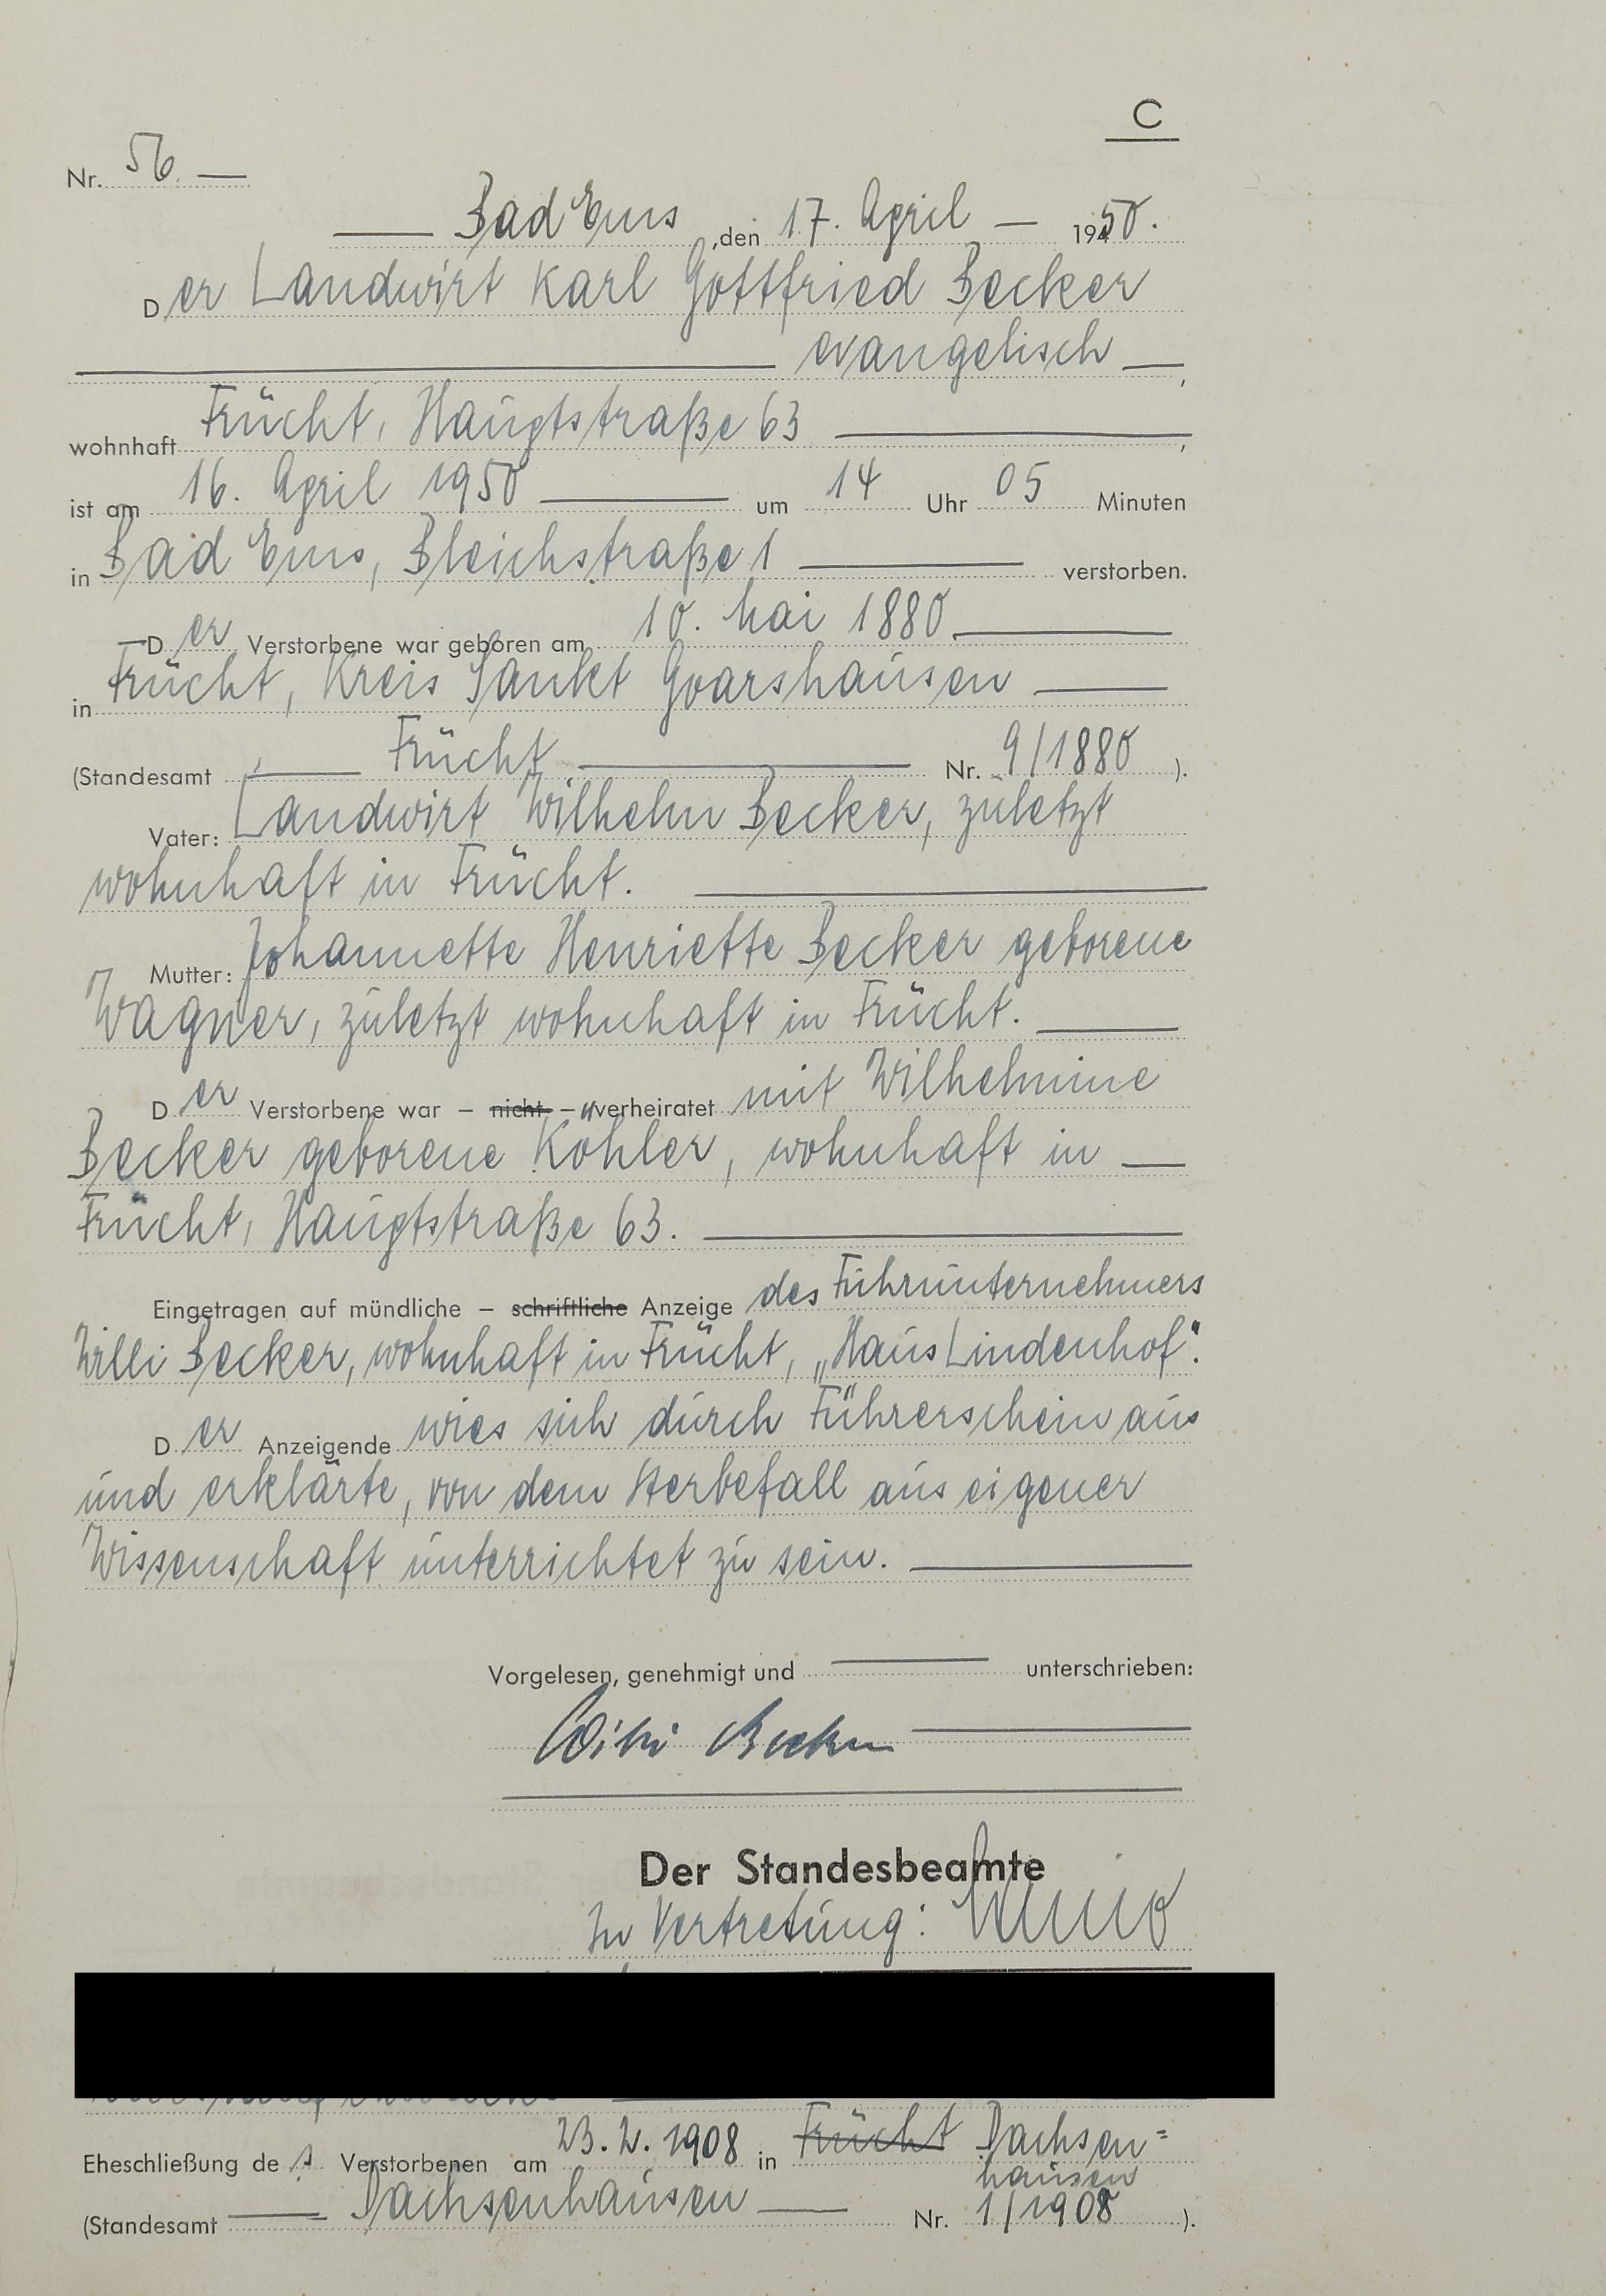 C
Nr. 56.
Bad Ems, den 17. April 1950.
Der Landwirt Karl Gottfried Becker
evangelisch,
wohnhaft Frücht, Hauptstraße 63,
ist am 16. April 1950 um 14 Uhr 05 Minuten
in Bad Ems, Bleichstraße 1 verstorben.
Der Verstorbene war geboren am 10. Mai 1880
in Frücht, Kreis Sankt Goarshausen
(Standesamt Frücht Nr. 9/1880).
Vater: Landwirt Wilhelm Becker, zuletzt
wohnhaft in Frücht.
Mutter: Johannette Henriette Becker geborene
Wagner, zuletzt wohnhaft in Frücht.
Der Verstorbene war – nicht – verheiratet mit Wilhelmine
Becker geborene Kohler, wohnhaft in
Frücht, Hauptstraße 63.
Eingetragen auf mündliche – schriftliche Anzeige des Fuhrunternehmers
Willi Becker, wohnhaft in Frücht, „Haus Lindenhof“.
Der Anzeigende wies sich durch Führerschein aus
und erklärte, von dem Sterbefall aus eigener
Wissenschaft unterrichtet zu sein.
Vorgelesen, genehmigt und unterschrieben:
Willi Becker
Der Standesbeamte
In Vertretung:
Eheschließung des Verstorbenen am 23.2.1908 in Frücht Dachsen=
hausen
(Standesamt Dachsenhausen Nr. 1/1908).